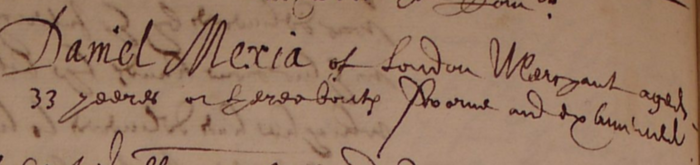 Daniel Mexia of London Merchant aged
33 yeeres or thereabouts sworne and examined